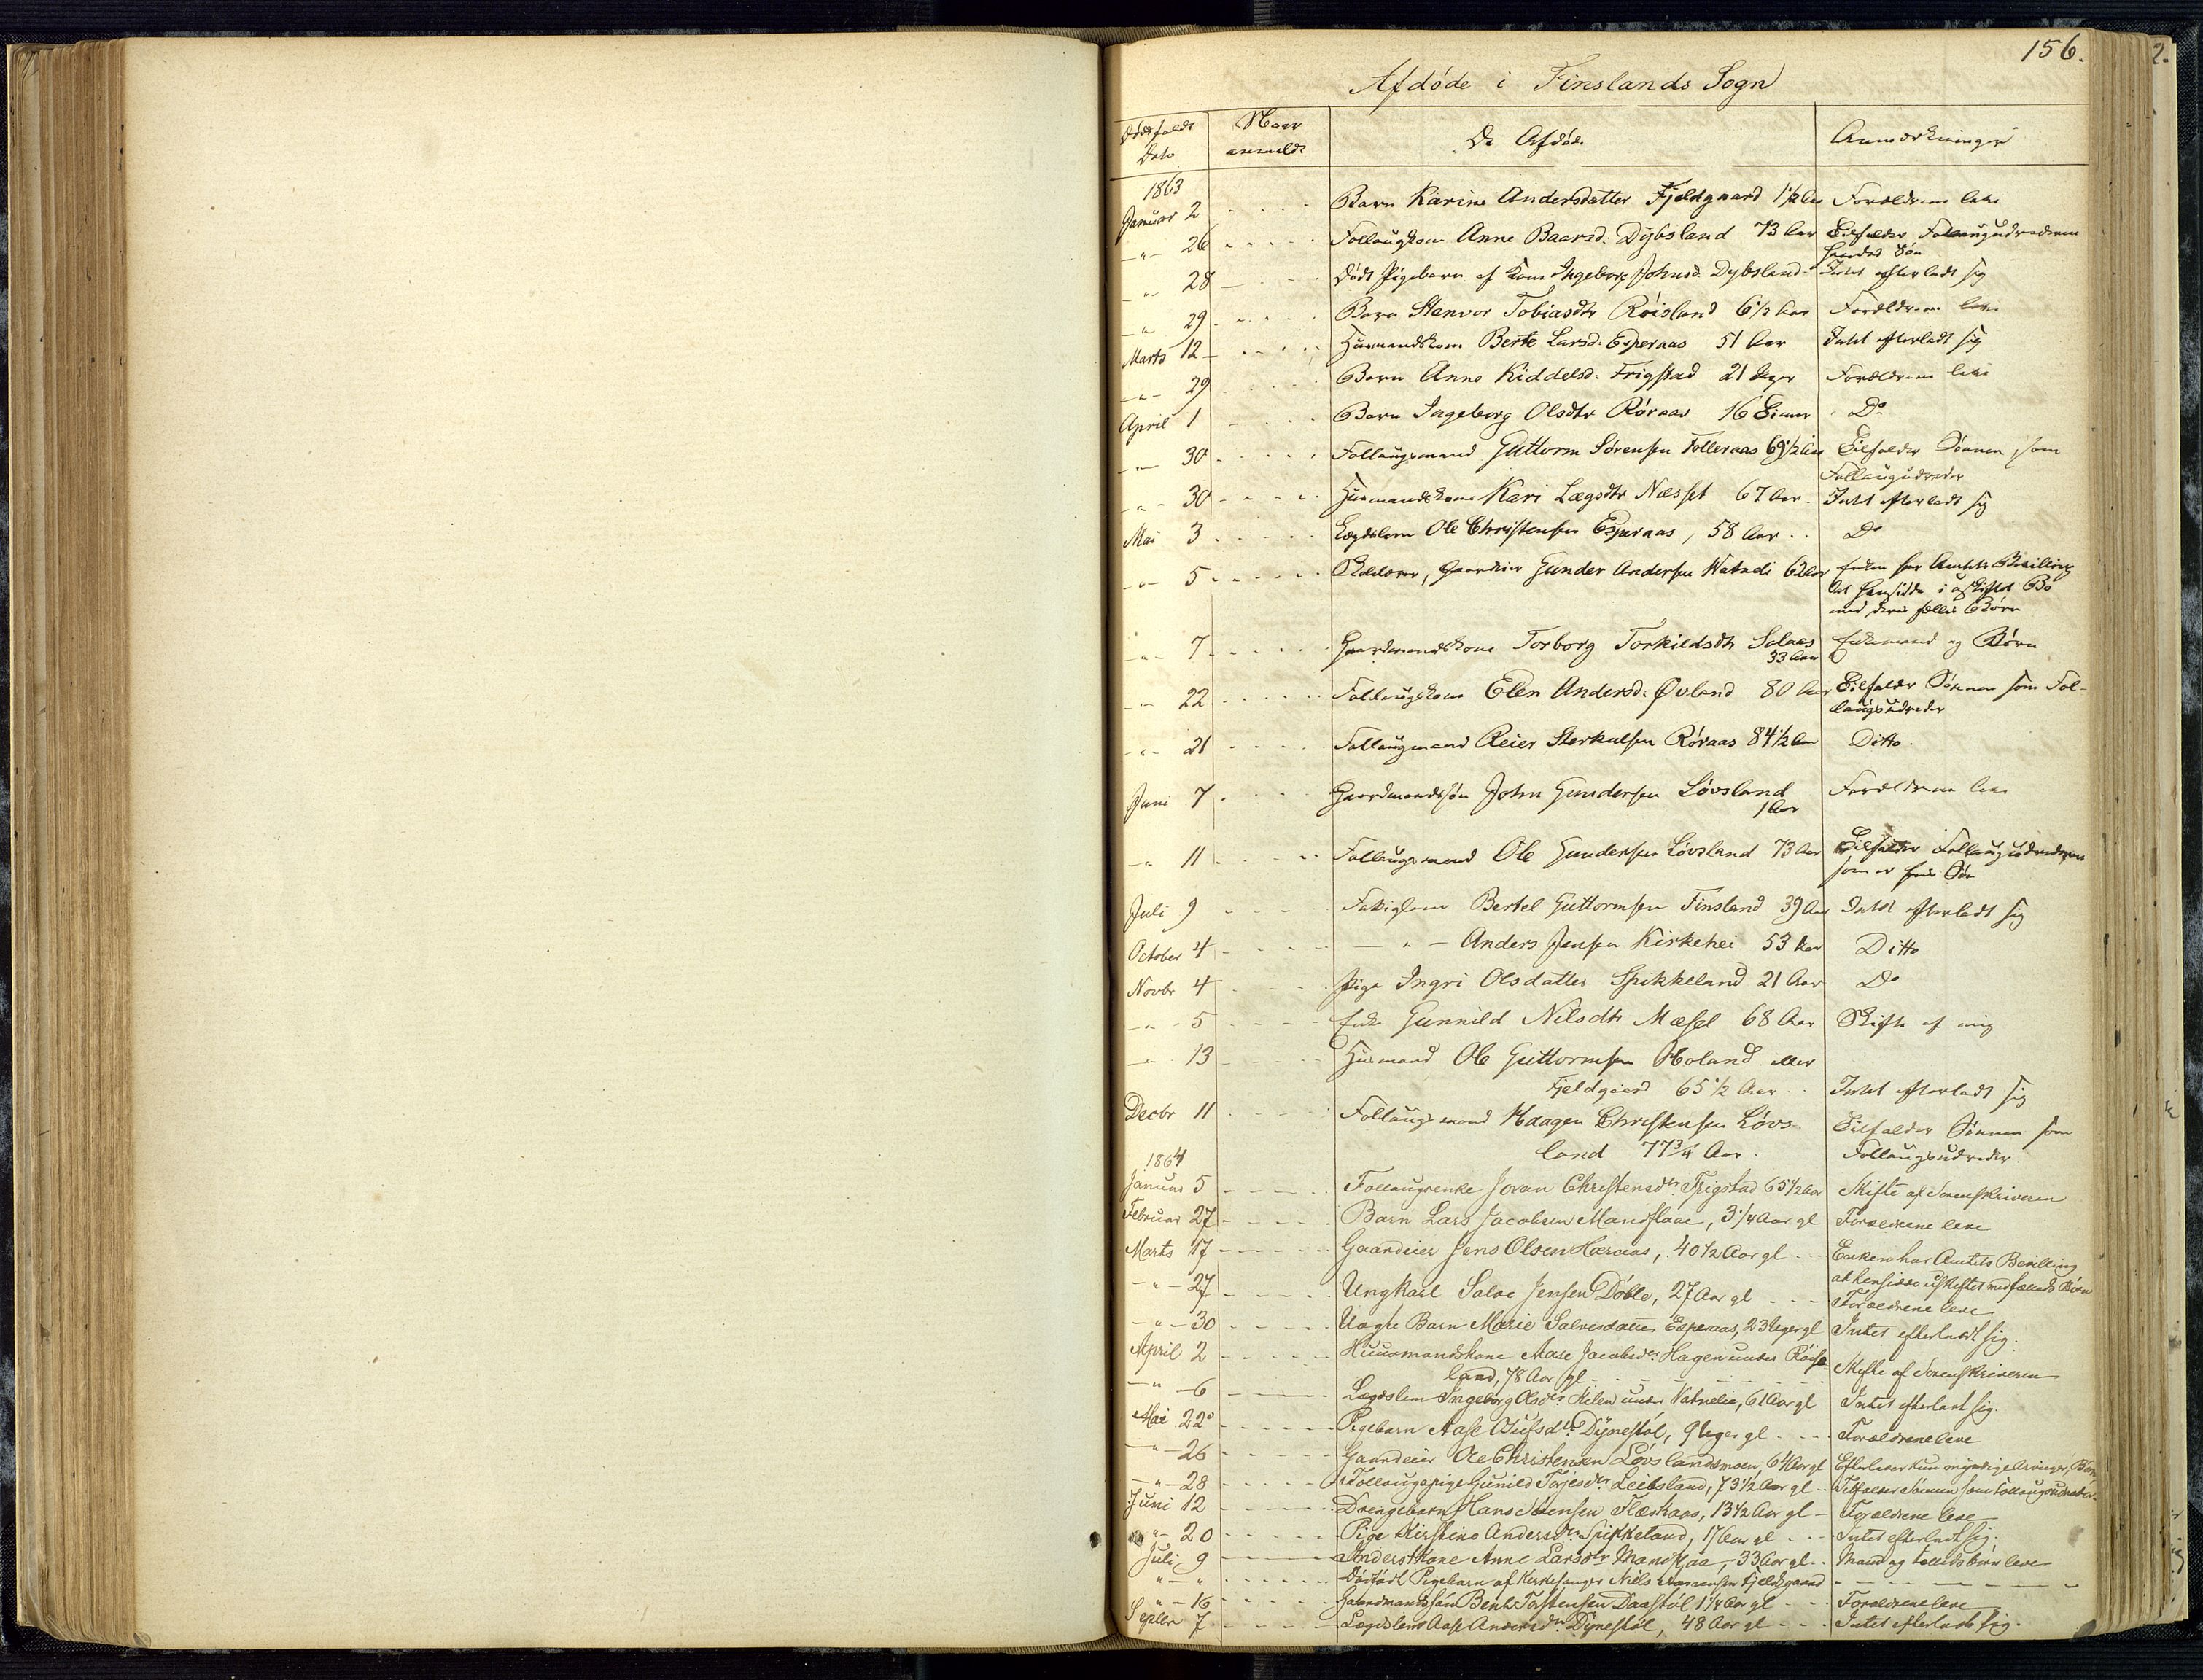 156.
2.
Afdøde i Finslands Sogn
Dødsfaldets Dato
Naar anmeldt
De Afdøde
Anmærkninger
1863
Januar 2 Barn Karine Andersdatter Fjeldgaard 1 1/2 Aar Forældrene leve
-"- 26 Follaugskone Anne Baarsd. Dybsland 73 Aar Tilfalder Follaugsudrederen
hendes Søn
-"- 28 Dødt Pigebarn af Kone Ingeborg Johnsd. Dybsland Intet efterladt sig
-"- 29 Barn Stenvor Tobiasdtr Røisland 6 1/2 Aar Forældrene leve
Marts 12 Huusmandskone Berte Larsd. Esperaas 51 Aar Intet efterladt sig
-"- 29 Barn Anne Kiddelsd. Frigstad 21 Uger Forældrene leve
April 1 Barn Ingeborg Olsdtr Røraas 16 Timer Do
-"- 30 Follaugsmand Guttorm Sørensen Folleraas 69 1/2 Aar Tilfalder Sønnen, som
Follaugsudreder
-"- 30 Huusmandskone Kari Lægsdtr Næsset 67 Aar Intet efterladt sig
Mai 3 Lægdslem Ole Christensen Esperaas, 58 Aar Do
-"- 5 Gaardeier Gunder Andersen Watneli 62 Aar Enken har Amtets Bevilling
at hensidde i uskiftet Bo
med deres fælles Børn
-"- 7 Gaardmandskone Torborg Torkildsdtr Solaas Enkemand og Børn
33 Aar
-"- 22 Follaugskone Elen Andersd. Øvland 80 Aar Tilfalder Sønnen som Fol-
laugsudreder
-"- 21 Follaugmand Reier Sterkulsen Røraas 84 1/2 Aar Ditto.
Juni 7 Gaardmandssøn John Gundersen Løvsland Forældrene leve
1 Aar
-"- 11 Follaugsmand Ole Gundersen Løvsland 73 Aar Tilfalder Follaugsudrederen
som er hans Søn
Juli 9 Fattiglem Bertel Guttormsen Finsland 39 Aar Intet efterladt sig
October 4 -"- Anders Jensen Kirkehei 53 Aar Ditto
Novbr 4 Pige Ingri Olsdatter Spikkeland 21 Aar Do
-"- 5 Enke Gunnild Nilsdtr Mæsel 68 Aar Skifte af mig
-"- 13 Huusmand Ole Guttormsen Holand eller
Fjeldgaard 65 1/2 Aar Intet efterladt sig
Decbr 11 Follaugsmand Haagen Christensen Løvs-
land 77 3/4 Aar. Tilfalder Sønnen som
Follaugsudreder.
1864
Januar 5 Follaugsenke Joran Christensdtr Frigstad 65 1/2 Aar Skifte af Sorenskriveren
Februar 27 Barn Lars Jacobsen Mandflaae, 3 1/4 Aar gl Forældrene leve
Marts 17 Gaardeier Jens Olsen Høraas, 40 1/2 Aar gl Enken har Amtets Bevilling
at hensidde i uskiftet med fælleds Børn
-"- 27 Ungkarl Salve Jensen Døble, 27 Aar gl Forældrene leve
-"- 30 Uægte Barn Marie Salvesdatter Esperaas, 23 Uger gl Intet efterladt sig.
April 2 Huusmandskone Aase Jacobsdtr Hagen under Røis-
land, 78 Aar gl Skifte af Sorenskriveren
-"- 6 Lægdslem Ingeborg Olsdtr Kilen under Vatnelie, 61 Aar gl Intet efterladt sig.
Mai 22 Pigebarn Aase Gufsdtr Dynestøl, 9 Uger gl Forældrene leve
-"- 26 Gaardeier Ole Christensen Løvslandsmoen, 64 Aar gl Efterlader kun myndige Arvinger, Børn
-"- 28 Follaugspige Gunild Torjesdtr Leibsland, 73 1/2 Aar gl Tilfalder Sønnen som Follaugsudreder
Juni 12 Drengebarn Hans Jensen Flæskaas, 13 1/2 Aar gl Forældrene leve
-"- 20 Pige Kirstine Andersdtr Spikkeland, 17 Aar gl Intet efterladt sig.
Juli 9 Inderstkone Anne Larsdtr Mandflaa, 33 Aar gl Mand og fælleds børn leve
"-" Dødfødt Pigebarn af Kirkesanger Niels Fjeldgaard
"-16 Gaardmandssøn Bent Torstensen Daastøl 1 1/4 Aar gl Forældrene leve
Septbr 7 Lægdslem Aase Andersdtr Dynestøl, 48 Aar gl Intet efterladt sig.